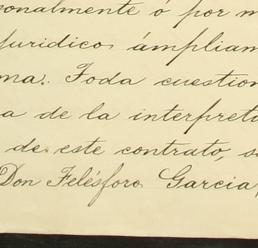 onalmente ó por m
juridico, ámpliam
ma. Toda cuestion
a de la interpreta
de este contrato, s
Don Felésforo Garcia,